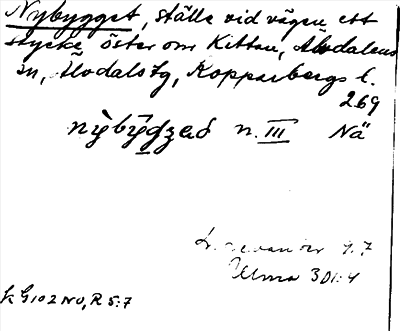 Nybygget, ställe vid vägen ett
stycke öster om Kittan, Älvdalens
sn, Älvdals tg, Kopparbergs l.
269
nỳbýdzaδ n. III Nä
L. Levander 9.7
Ulma 301:4
k G 102 NV, R 5:7